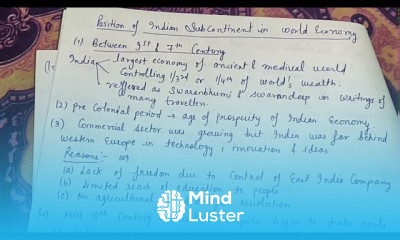 Position of Indian Subcontinent in World Economy
(1) Between 1st & 7th Century
India
largest economy of ancient & medival world
Controlling 1/3rd or 1/4th of world's wealth.
reffered as Swaranbhumi & swarandeep in writings of
many travellers.
(2) Pre Colonial period → age of prosperity of Indian Economy
(3) Commercial sector was growing but India was far behind
western Europe in technology, innovation & ideas
Reasons:-
(a) Lack of freedom due to Control of East India Company
(b) Limited reach of education to people
(c) No agricultural revolution
(4) Mid 18th Century began to take roots
Mind
Luster